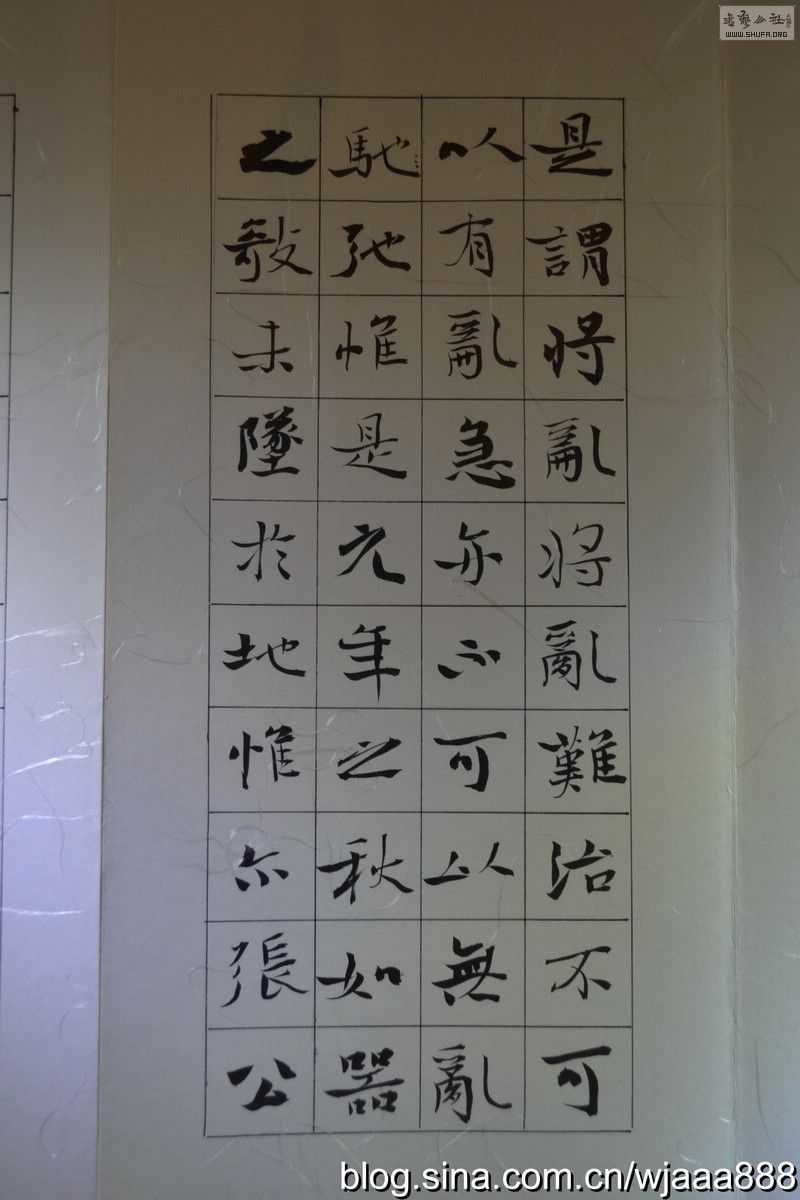 書藝公社
WWW.SHUFA.ORG
是謂將亂將亂難治不可
以有亂急亦不可以無亂
馳弛惟是元年之秋如器
之敧未墜於地惟尔張公
blog.sina.com.cn/wjaaa888